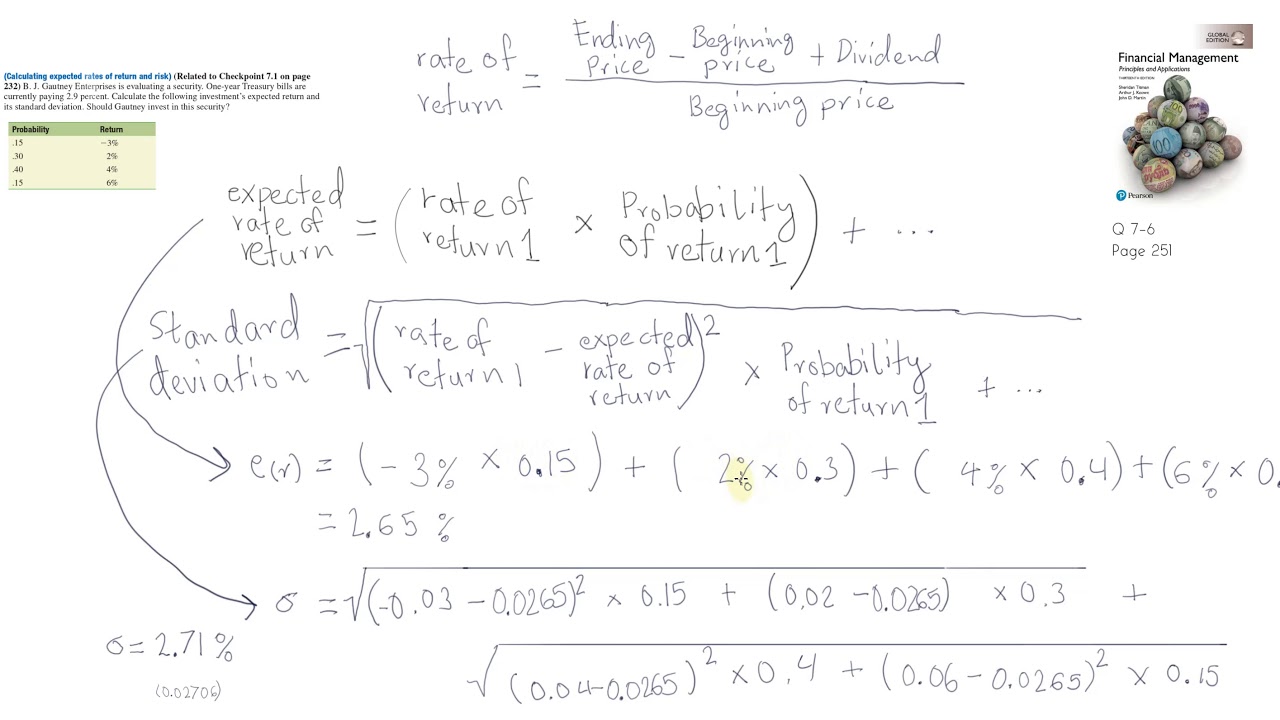 rate of return = Ending Price − Beginning price + Dividend
Beginning price
GLOBAL EDITION
Financial Management
Principles and Applications
THIRTEENTH EDITION
Sheridan Titman
Arthur J. Keown
John D. Martin
Pearson
Q 7-6
Page 251
(Calculating expected rates of return and risk) (Related to Checkpoint 7.1 on page
232) B. J. Gautney Enterprises is evaluating a security. One-year Treasury bills are
currently paying 2.9 percent. Calculate the following investment's expected return and
its standard deviation. Should Gautney invest in this security?
Probability Return
.15 −3%
.30 2%
.40 4%
.15 6%
expected rate of return = (rate of return 1 × Probability of return 1) + ...
Standard deviation = √(rate of return 1 − expected rate of return)² × Probability of return 1 + ...
e(r) = (−3% × 0.15) + ( 2% × 0.3) + ( 4% × 0.4) + (6% × 0.
= 2.65 %
σ = √(−0.03 − 0.0265)² × 0.15 + (0.02 − 0.0265) × 0.3 +
√(0.04−0.0265)² × 0.4 + (0.06 − 0.0265)² × 0.15
σ = 2.71 %
(0.02706)